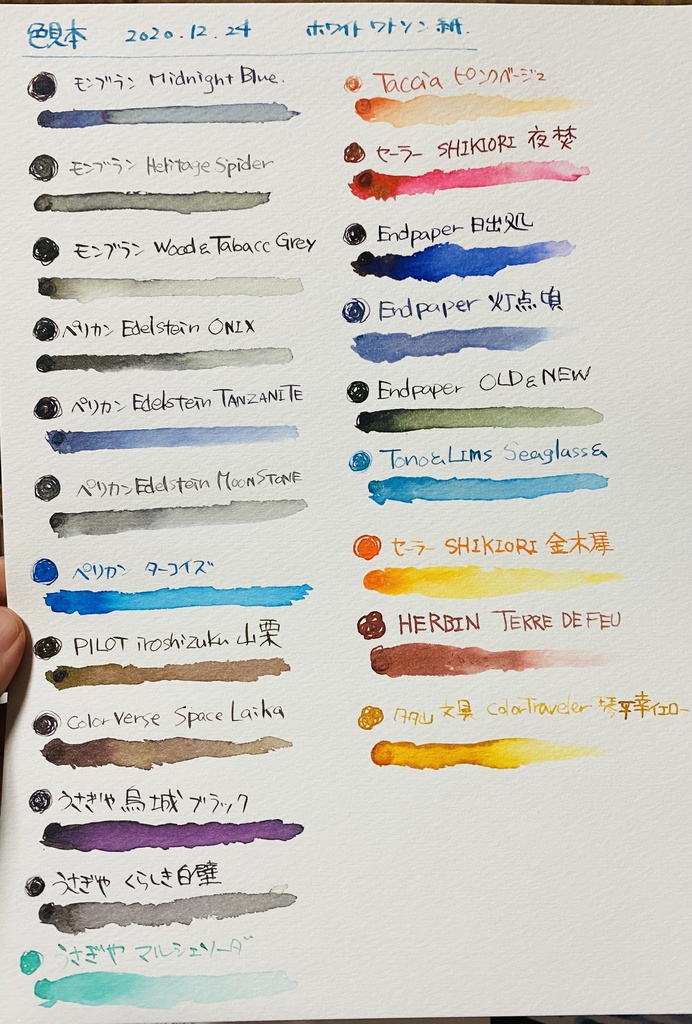 色見本 2020.12.24 ホワイトワトソン紙
モンブラン Midnight Blue.
モンブラン Heritage Spider
モンブラン Wood & Tabacc Grey
ペリカン Edelstein ONIX
ペリカン Edelstein TANZANITE
ペリカン Edelstein MOONSTONE
ペリカン ターコイズ
PILOT iroshizuku 山栗
Color Verse Space Laika
うさぎや 烏城ブラック
うさぎや くらしき白壁
うさぎや マルシェソーダ
Taccia ピンクベージュ
セーラー SHIKIORI 夜焚
Endpaper 日出処
Endpaper 灯点頃
Endpaper OLD & NEW
Tono & LIMS Seaglass
セーラー SHIKIORI 金木犀
HERBIN TERRE DE FEU
タタ山 文具 ColorTraveler 琴平幸イエロー